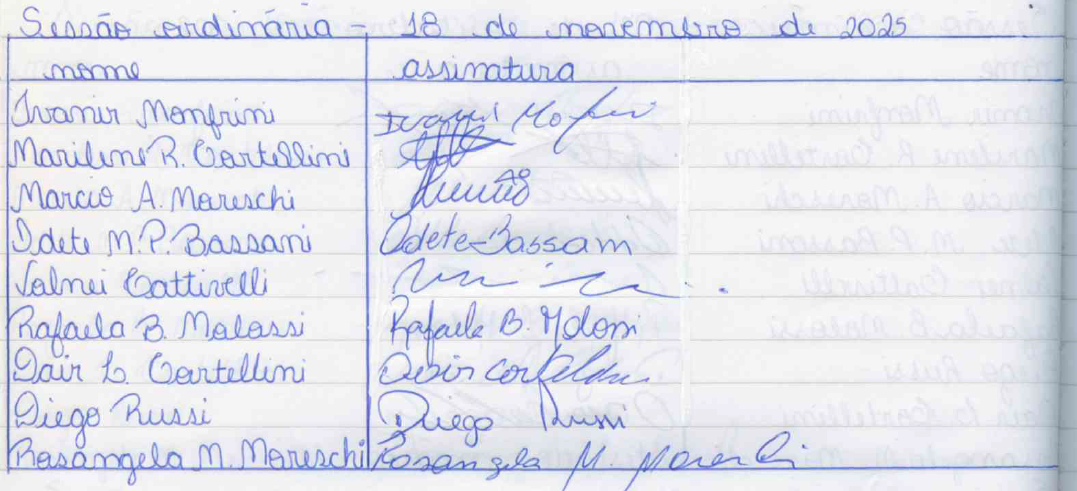 Sessão ordinária - 18 de novembro de 2025
nome assinatura
Ivanir Monfrini
Marileni R. Cartellini
Marcio A. Mareschi
Odete M.P. Bassani Odete Bassani
Valnei Cattivelli
Rafaela B. Malossi Rafaela B.
Dair L. Cartellini Dair
Diego Russi Diego Russi
Rosangela M. Mareschi Rosangela M.